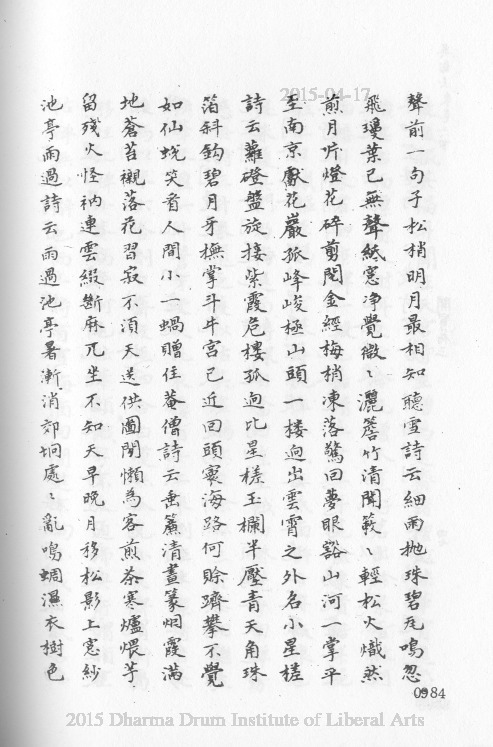 2015-04-17
聲前一句子松梢明月最相知聽雪詩云細雨拋珠碧瓦鳴忽
飛瓊葉已無聲紙窓净覺微〻灑簷竹清聞簌〻輕松火熾然
煎月片燈花碎剪閱金經梅梢凍落驚回夢眼豁山河一掌平
至南京獻花巖孤峰峻極山頭一楼逈出雲霄之外名小星槎
詩云蘿磴盤旋接紫霞危樓孤逈比星槎玉欄半壓青天角珠
箔斜鈎碧月牙撫掌斗牛宮已近回頭寰海路何賒躋攀不覺
如仙蛻笑看人間小一蝸贈住菴僧詩云禹簾清晝篆烟霞滿
地蒼苔襯落花習寂不湏天送供圖閒懶為客煎茶寒爐煨芋
留殘火怪衲連雲綴斷麻兀坐不知天早晚月移松影上窓紗
池亭雨過詩云雨過池亭暑漸消郊坰處〻亂鳴蜩濕衣樹色
0984
2015 Dharma Drum Institute of Liberal Arts